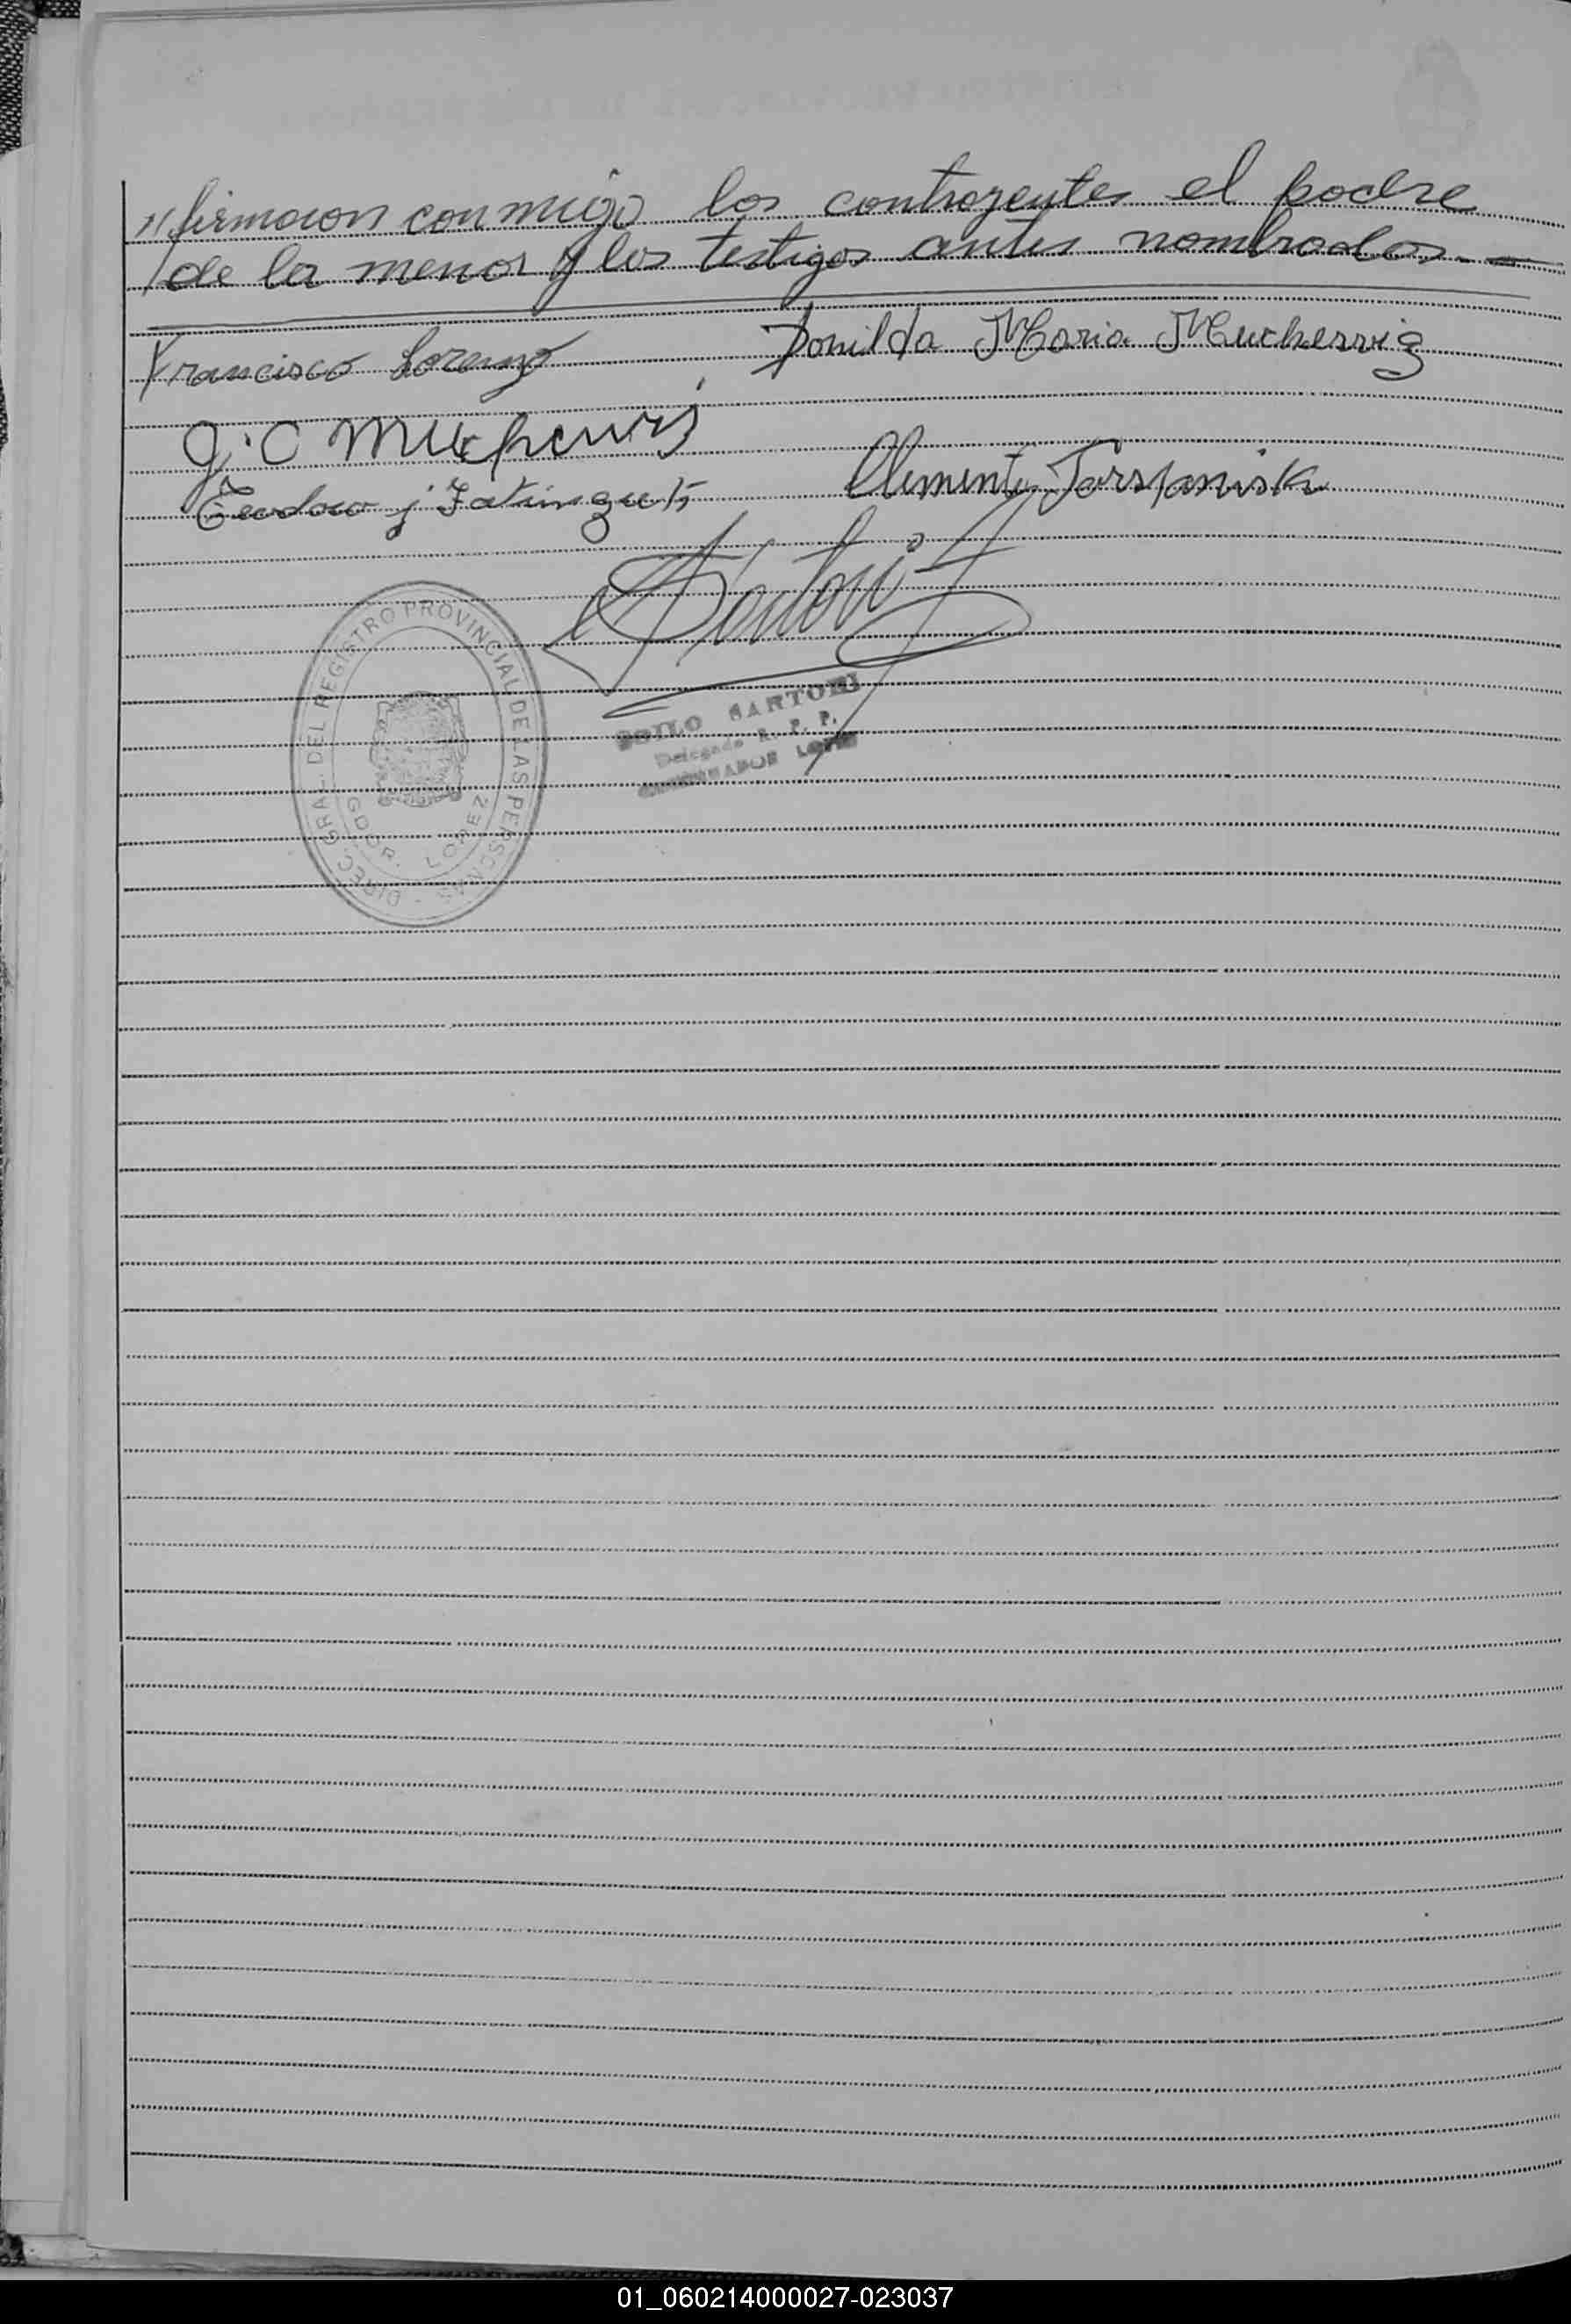 // firmaron conmigo los contrayentes el padre
de la menor y los testigos antes nombrados.—
Francisco Lorenzo
Donilda Maria Mucherrvig
J. C
Clemente
Sartori
DIREC. GRAL. DEL REGISTRO PROVINCIAL DE LAS PERSONAS
GDOR. LOPEZ
SARTORI
Delegado R. P. P.
GOBERNADOR LOPEZ
01_060214000027-023037